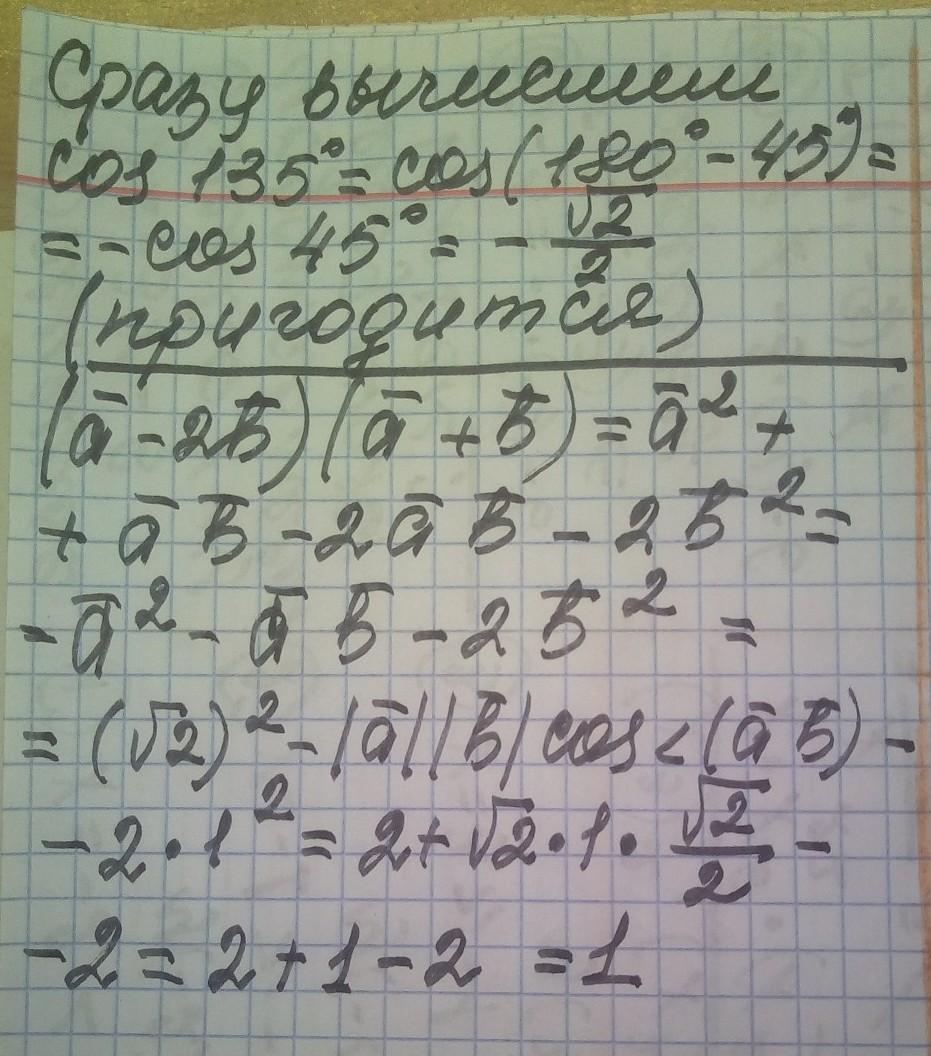 Сразу вычислим
cos 135° = cos(180° - 45°) =
= - cos 45° = - √2/2
(пригодится)
(a̅ - 2b̅)(a̅ + b̅) = a̅² +
+ a̅ b̅ - 2 a̅ b̅ - 2 b̅² =
- a̅² - a̅ b̅ - 2 b̅² =
= (√2)² - |a̅||b̅| cos < (a̅ b̅) -
- 2 · 1² = 2 + √2 · 1 · √2/2 -
- 2 = 2 + 1 - 2 = 1